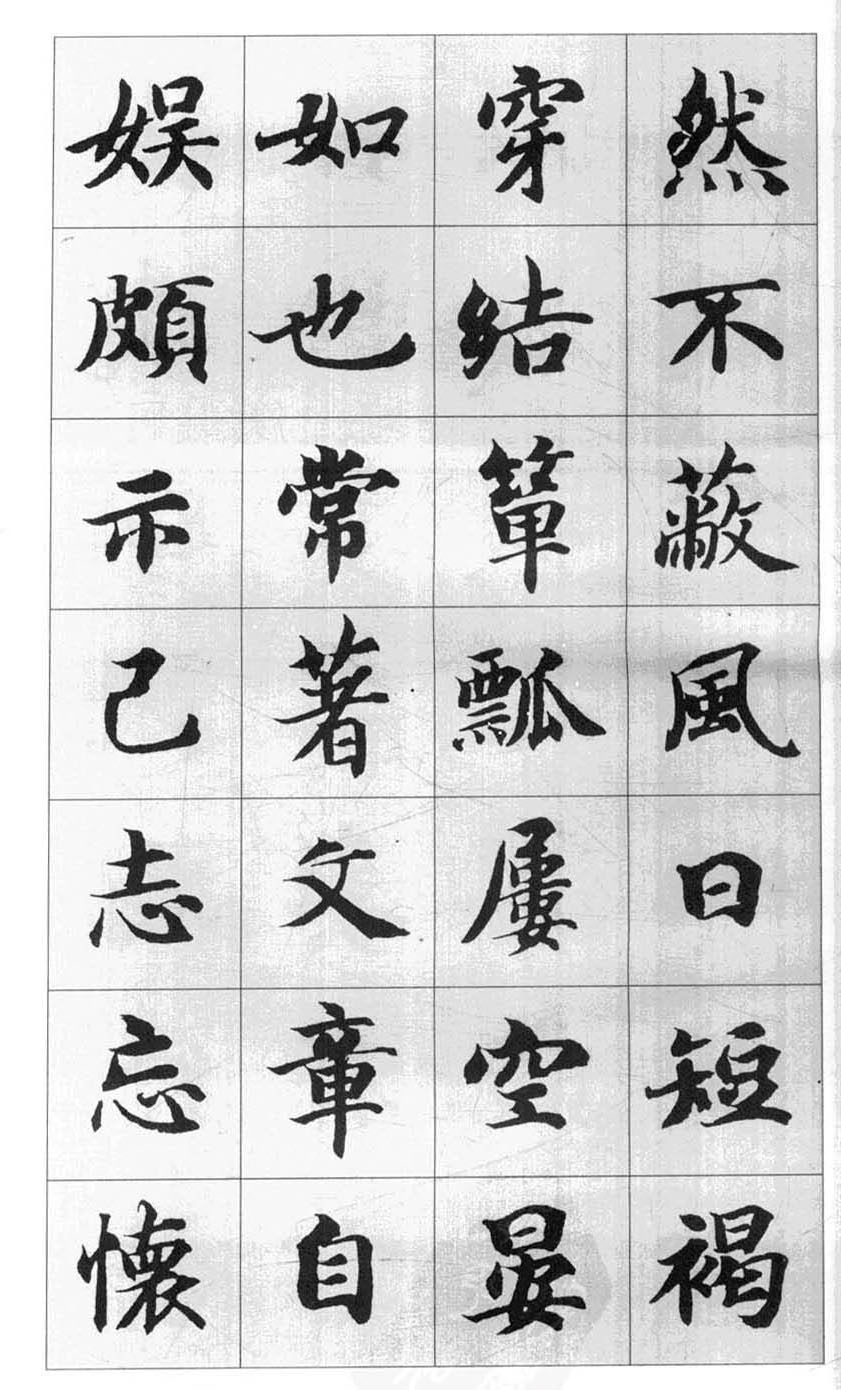 然不蔽風日短褐
穿結簞瓢屢空晏
如也常著文章自
娛頗示己志忘懷